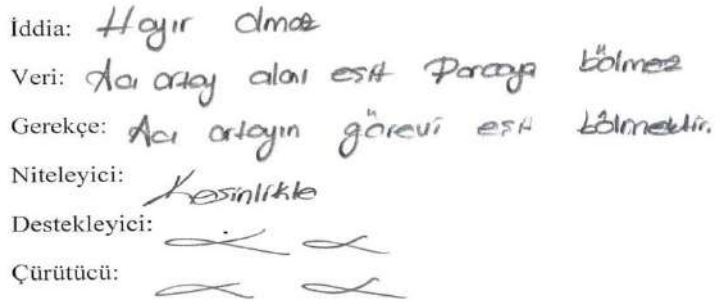 İddia: Hayır olmaz
Veri: Açı ortay alanı eşit Parçaya bölmez
Gerekçe: Açı ortayın görevi eşit bölmektir.
Niteleyici: Kesinlikle
Destekleyici:
Çürütücü: